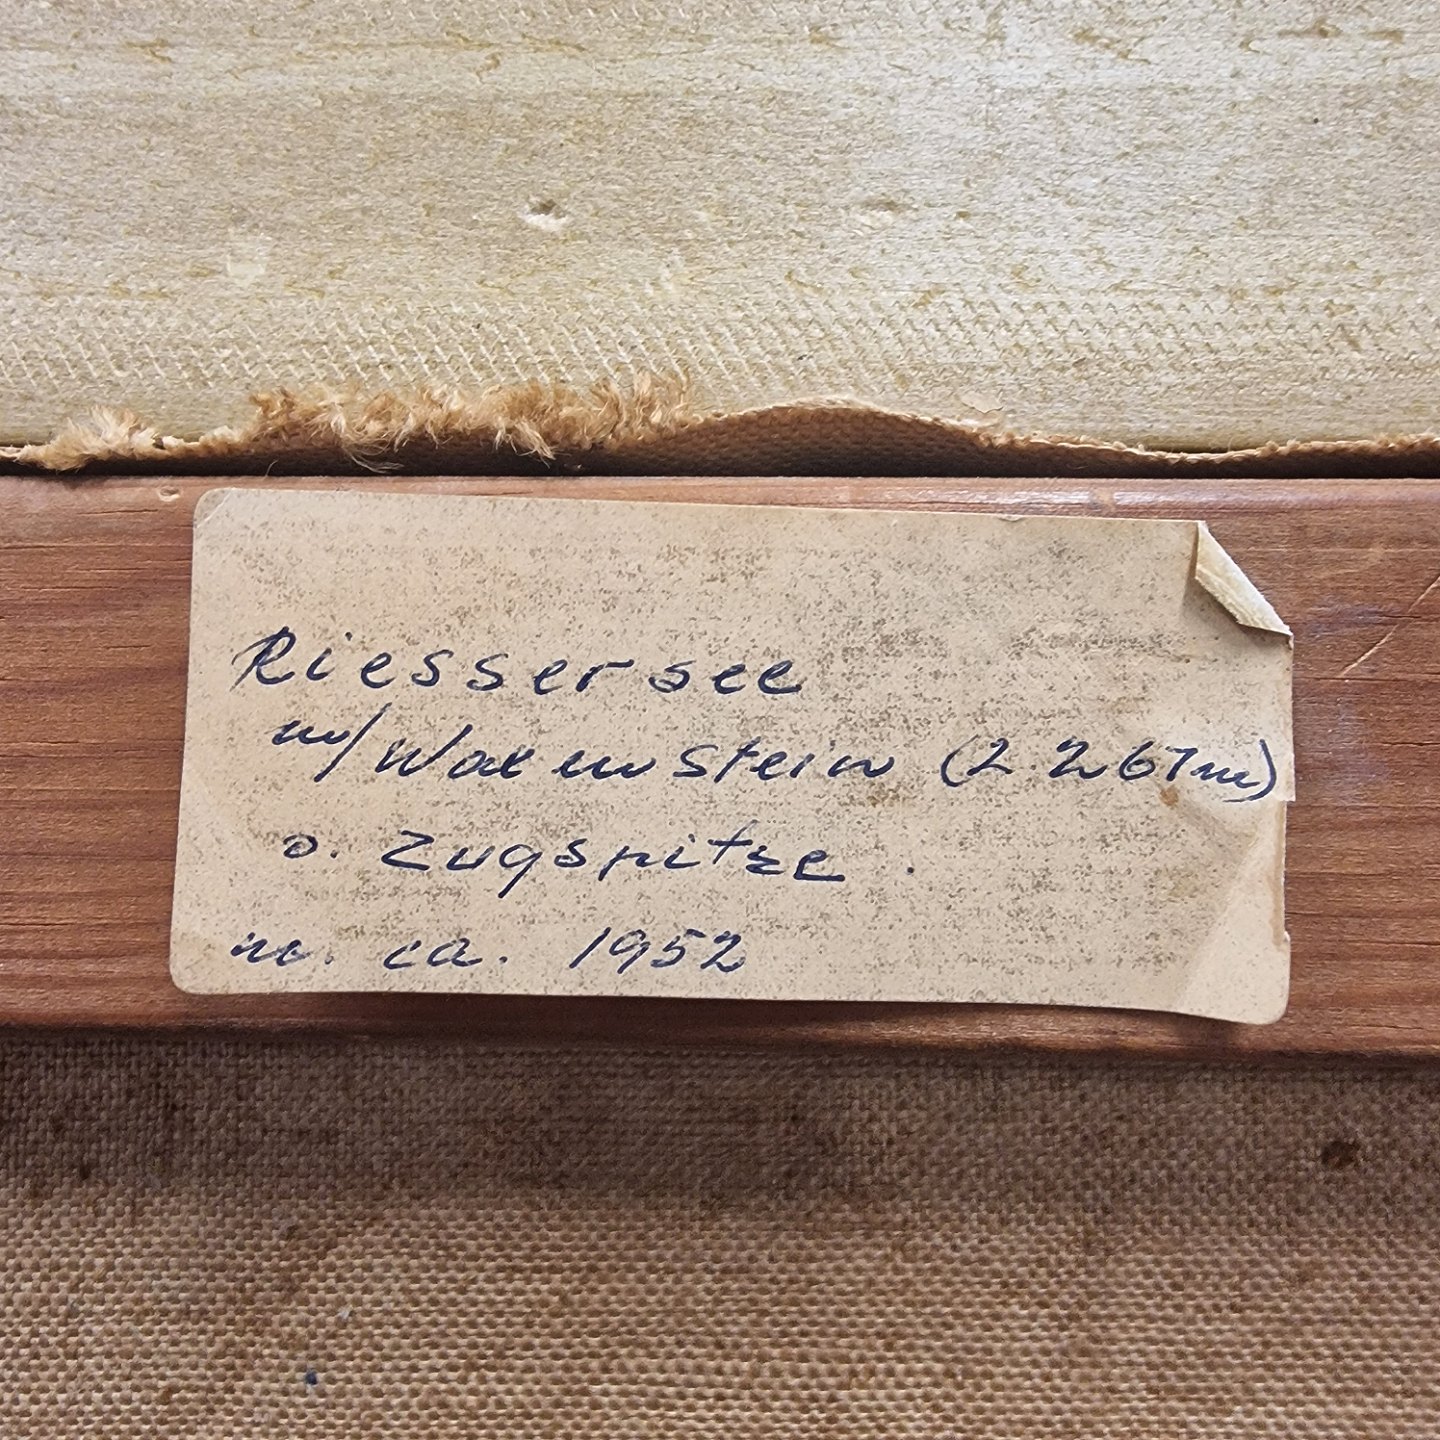 Riessersee
m/ Waxenstein (2.267m)
o. Zugspitze.
m. ca. 1952